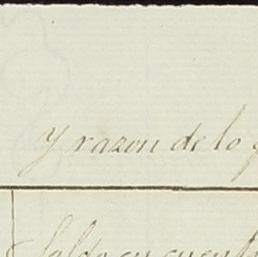 y razon de lo q
Saldo en cuent